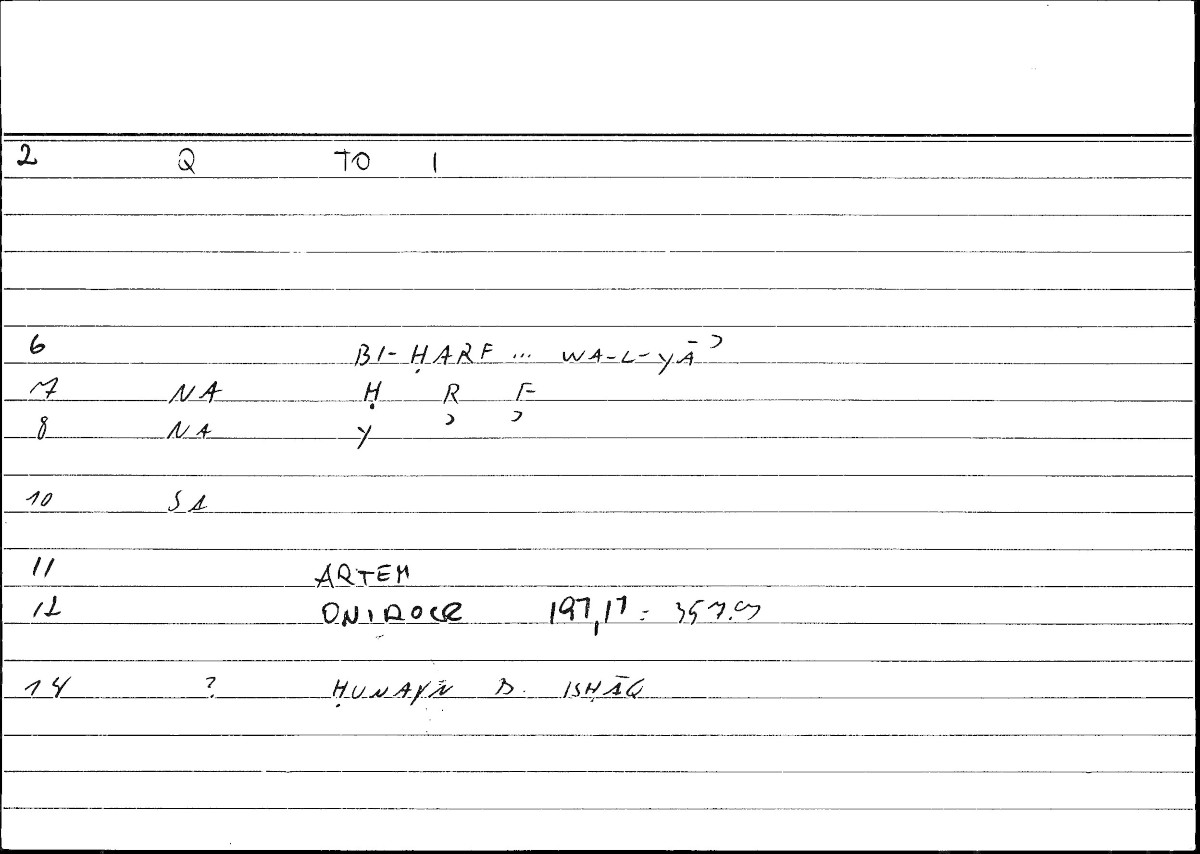 2 Q TO 1
6 BI-ḤARF ... WA-L-YĀʾ
7 NA Ḥ R F
8 NA Y ʾ ʾ
10 SA
11 ARTEM
12 ONIROCR 197,17 : 357.9
14 ? ḤUNAYN B. ISḤĀQ